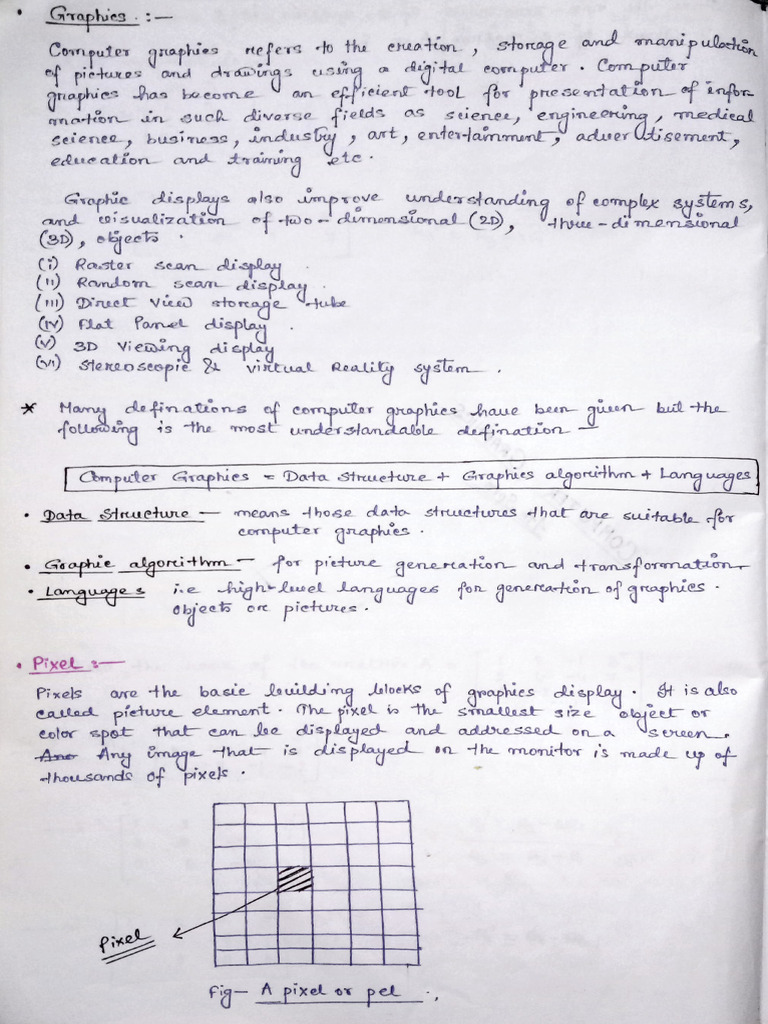 • Graphics :—
Computer graphics refers to the creation, storage and manipulation
of pictures and drawings using a digital computer. Computer
graphics has become an efficient tool for presentation of infor-
mation in such diverse fields as science, engineering, medical
science, business, industry, art, entertainment, advertisement,
education and training etc.
Graphic displays also improve understanding of complex systems,
and visualization of two-dimensional (2D), three-dimensional
(3D), objects.
(i) Raster scan display.
(ii) Random scan display.
(iii) Direct View storage tube
(iv) Flat Panel display.
(v) 3D Viewing display
(vi) Stereoscopic & virtual Reality system.
* Many definations of computer graphics have been given but the
following is the most understandable defination —
Computer Graphics = Data Structure + Graphics algorithm + Languages
• Data Structure — means those data structures that are suitable for
computer graphics.
• Graphic algorithm — for picture generation and transformation.
• Languages i.e high-level languages for generation of graphics.
objects or pictures.
• Pixel :—
Pixels are the basic building blocks of graphics display. It is also
called picture element. The pixel is the smallest size object or
color spot that can be displayed and addressed on a screen.
Any image that is displayed on the monitor is made up of
thousands of pixels.
Pixel
Fig— A pixel or pel